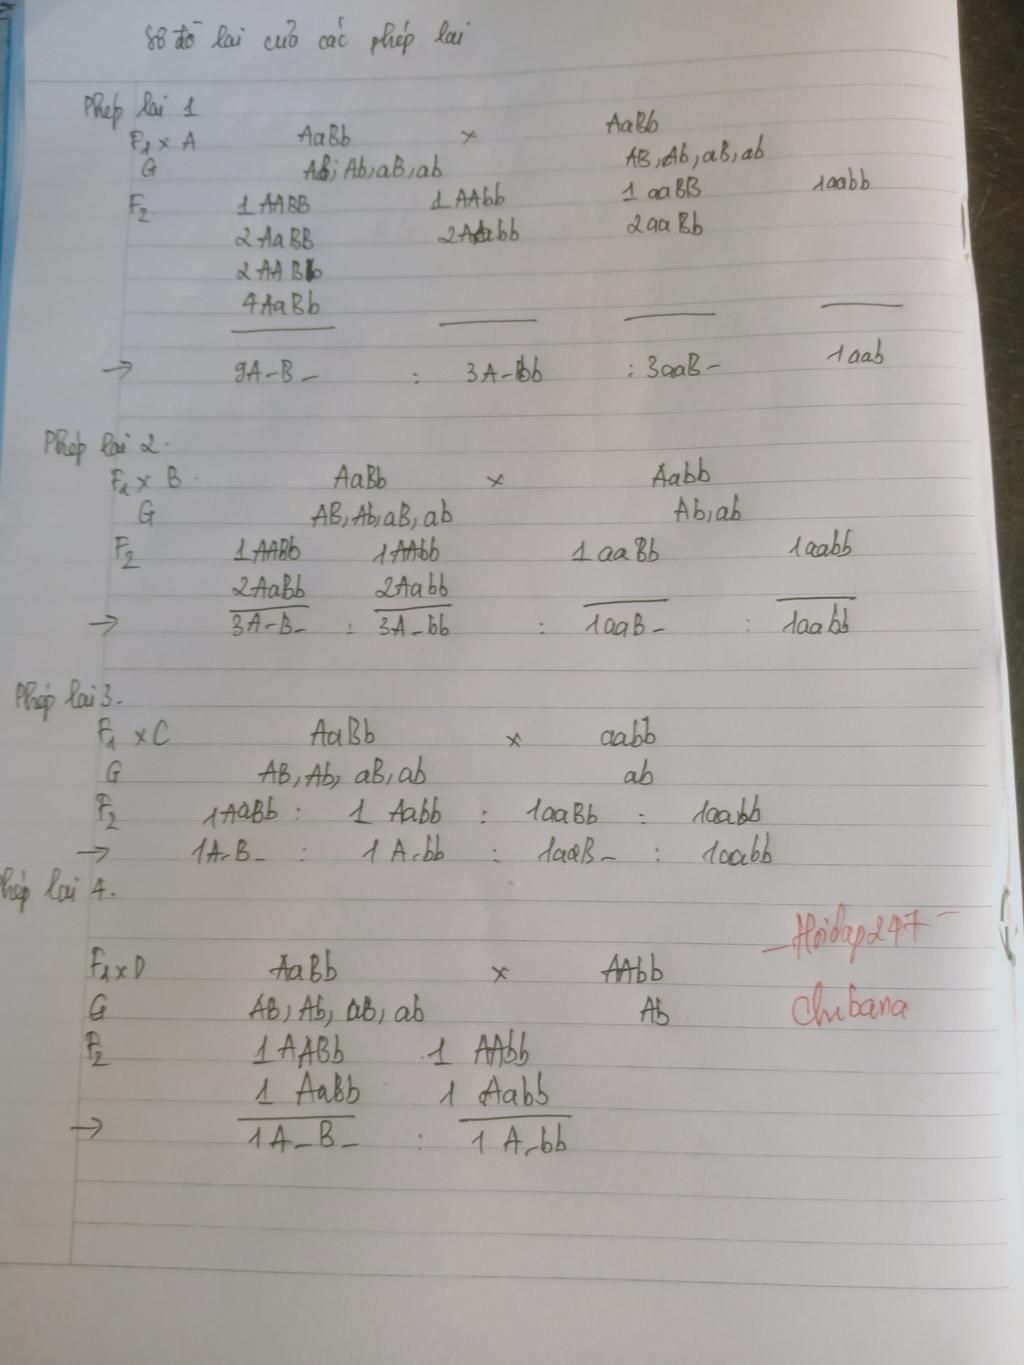 Sơ đồ lai của các phép lai
Phép lai 1
F1 x A AaBb x AaBb
G AB; Ab, aB, ab AB, Ab, aB, ab
F2 1 AABB 1 AAbb 1 aaBB 1aabb
2 AaBB 2Aabb 2aaBb
2 AABb
4 AaBb
→ 9A-B- : 3A-bb : 3aaB- 1aab
Phép lai 2.
F1 x B AaBb x Aabb
G AB, Ab, aB, ab Ab, ab
F2 1AABb 1AAbb 1 aaBb 1aabb
2AaBb 2Aabb
→ 3A-B- : 3A-bb : 1aaB- : 1aabb
Phép lai 3.
F1 x C AaBb x aabb
G AB, Ab, aB, ab ab
F2 1AaBb : 1 Aabb : 1aaBb : 1aabb
→ 1A-B- : 1 A-bb : 1aaB- : 1aabb
Phép lai 4.
-Hoidap247-
F1 x D AaBb x AAbb
Chibana
G AB, Ab, aB, ab Ab
F2 1 AABb 1 AAbb
1 AaBb 1 Aabb
→ 1 A-B- : 1 A-bb